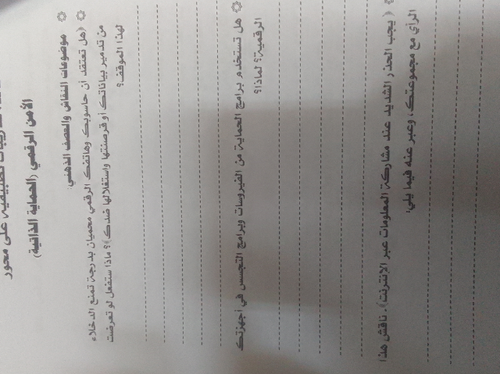 تطبيقية على محور
الأمن الرقمي (الحماية الذاتية)
موضوعات النقاش والعصف الذهني
(هل تعتقد أن حاسوبك وهاتفك الرقمي محميان بدرجة تمنع الدخلاء
من تدمير بياناتك أو قرصنتها واستغلالها ضدك)؟ ماذا ستفعل لو تعرضت
لهذا الموقف؟
هل تستخدم برامج الحماية من الفيروسات وبرامج التجسس في أجهزتك
الرقمية؟ لماذا؟
(يجب الحذر الشديد عند مشاركة المعلومات عبر الإنترنت). ناقش هذا
الرأي مع مجموعتك، وعبر عنه فيما يلي: